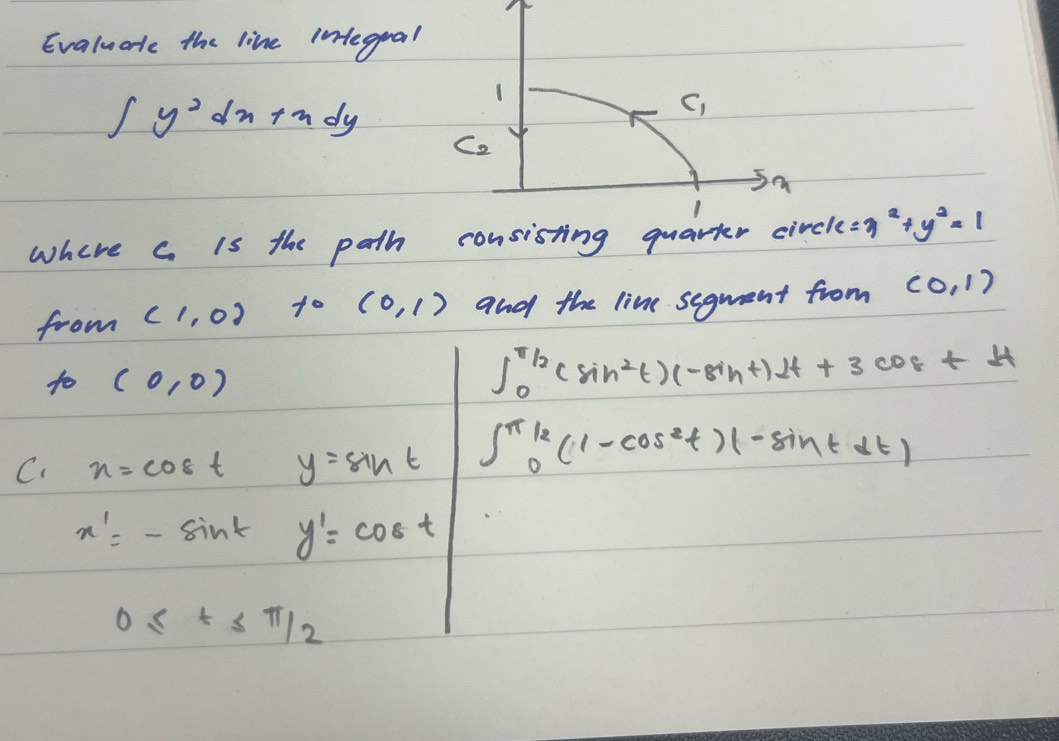 Evaluate the line integral
∫ y² dx + x dy
1
C₁
C₂
x
1
where C is the path consisting quarter circle = x² + y² = 1
from (1,0) to (0,1) and the line segment from (0,1)
to (0,0)
C₁ x = cos t y = sin t
x' = - sin t y' = cos t
0 ≤ t ≤ π/2
∫₀^π/2 (sin²t)(-sin t) dt + 3 cos t dt
∫₀^π/2 (1 - cos²t)(-sin t dt)